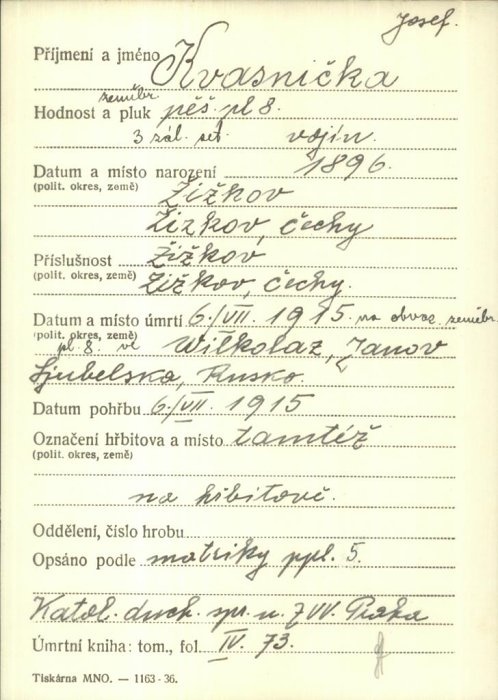 Josef.
Příjmení a jméno Kvasnička
zeměbr.
Hodnost a pluk pěš. pl 8.
3 zál. set. vojín.
Datum a místo narození 1896.
(polit. okres, země) Žižkov
Žižkov, čechy
Příslušnost Žižkov
(polit. okres, země) Žižkov, čechy.
Datum a místo úmrtí 6./VII. 1915 na obvaz. zeměbr.
(polit. okres, země)
pl 8. ve Wilkolaz, Janov
Ljubelska, Rusko.
Datum pohřbu 6./VII. 1915
Označení hřbitova a místo tamtéž
(polit. okres, země)
na hřbitově.
Oddělení, číslo hrobu
Opsáno podle matriky ppl. 5.
Katol. duch. spr. u ZVV. Praha
Úmrtní kniha: tom., fol. IV. 73.
Tiskárna MNO. — 1163-36.